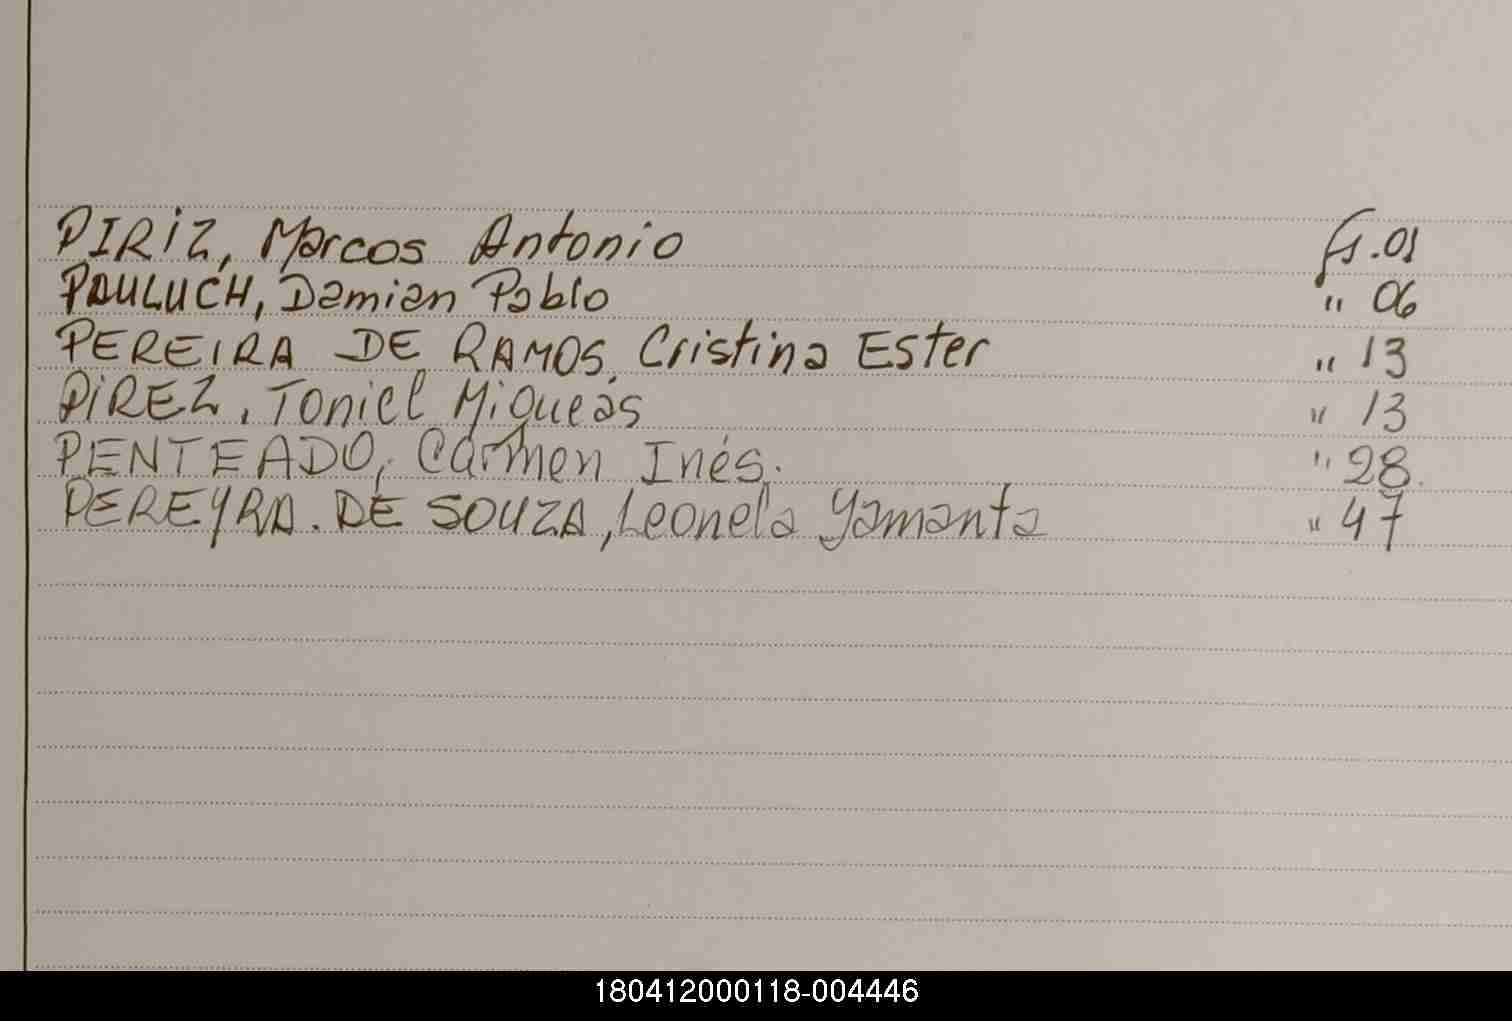 PIRIZ, Marcos Antonio fs.01
PAULUCH, Damian Pablo " 06
PEREIRA DE RAMOS, Cristina Ester " 13
PIREZ, Toniel Miqueas " 13
PENTEADO, Carmen Inés. " 28.
PEREYRA. DE SOUZA, Leonela Yamanta " 47
180412000118-004446